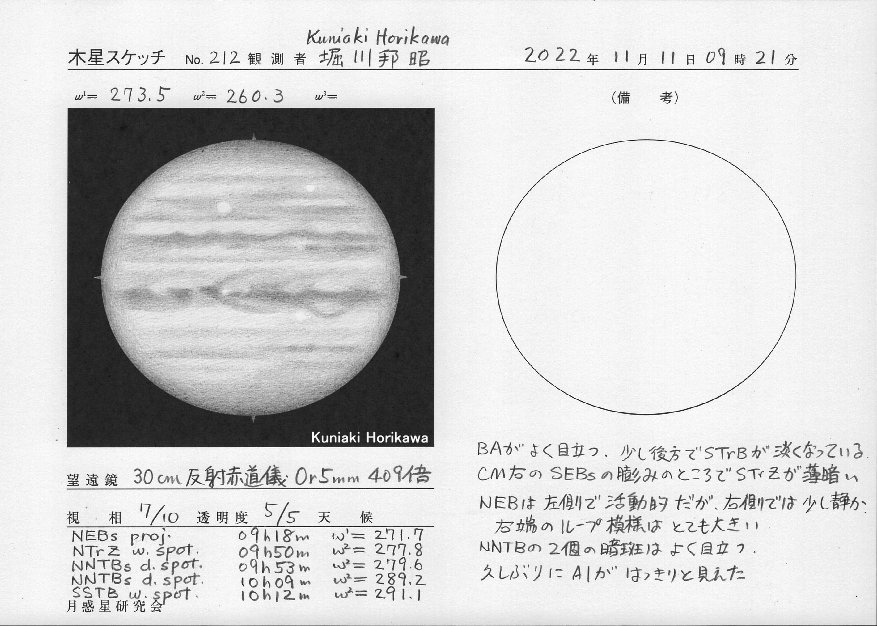 Kuniaki Horikawa
木星スケッチ No. 212 観測者 堀川邦昭 2022年 11月 11日 09時 21分
ω¹= 273.5 ω²= 260.3 ω³=
(備 考)
Kuniaki Horikawa
BAがよく目立つ、少し後方でSTrBが淡くなっている.
CM右のSEBsの膨みのところでSTrZが薄暗い
NEBは左側で活動的だが、右側では少し静か.
右端のループ模様はとても大きい
NNTBの2個の暗斑はよく目立つ.
久しぶりにA1がはっきりと見えた
望遠鏡 30cm反射赤道儀 Or5mm 409倍
視相 7/10 透明度 5/5 天候
NEBs proj. 09h18m ω¹= 271.7
NTrZ w. spot. 09h50m ω²= 277.8
NNTBs d. spot. 09h53m ω²= 279.6
NNTBs d. spot. 10h09m ω²= 289.2
SSTB w. spot. 10h12m ω²= 291.1
月惑星研究会